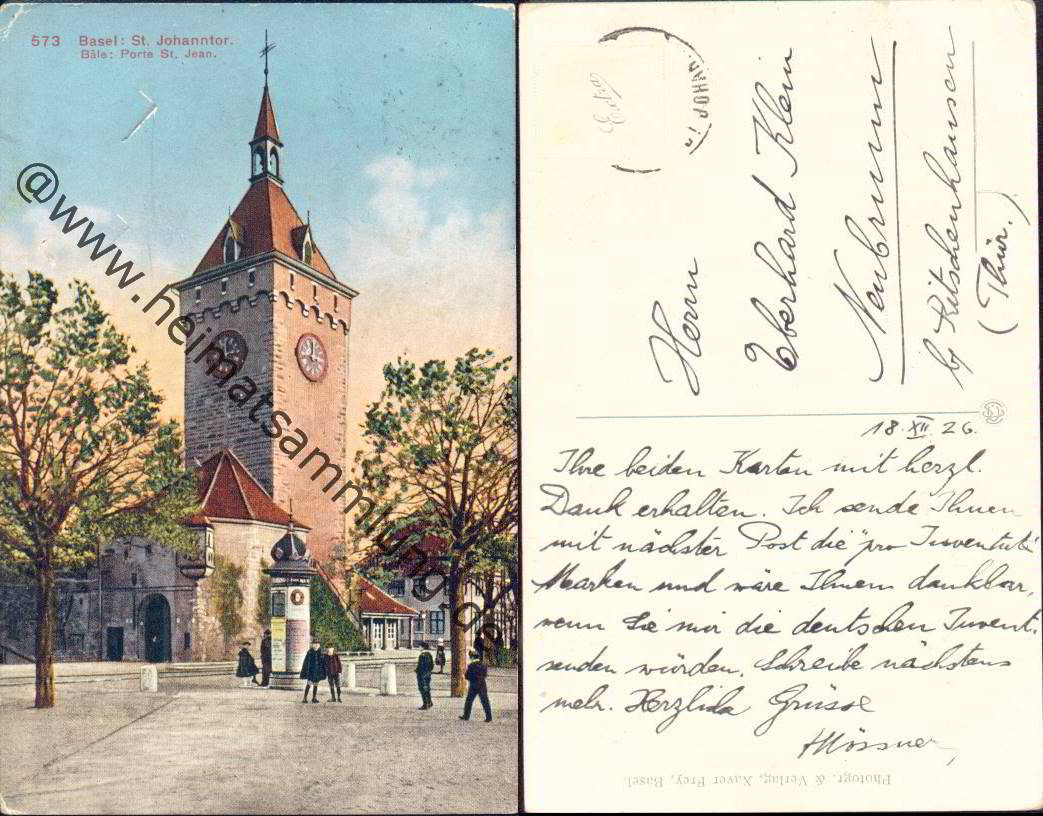 573 Basel: St. Johanntor.
Bâle: Porte St. Jean.
@www.heimatsammlung.de
ST. JOHANN
Herrn
Eberhard Klein
Neubrunn
by Ritschenhausen
(Thür.)
18. XII. 26.
Ihre beiden Karten mit herzl.
Dank erhalten. Ich sende Ihnen
mit nächster Post die "pro Juventute"
Marken und wäre Ihnen dankbar,
wenn Sie mir die deutschen Juvent.
senden würden. Schreibe nächstens
mehr. Herzliche Grüsse
HMössner
Photogr. & Verlag, Xaver Frey, Basel.